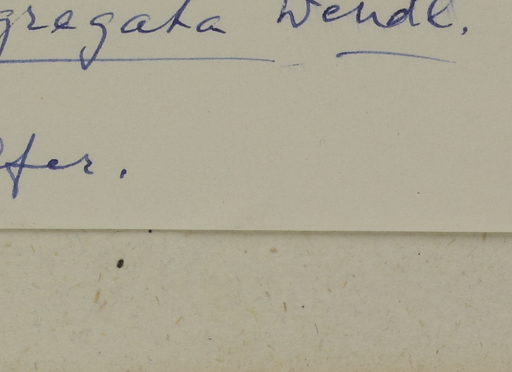 gregata Wendl.
fer.